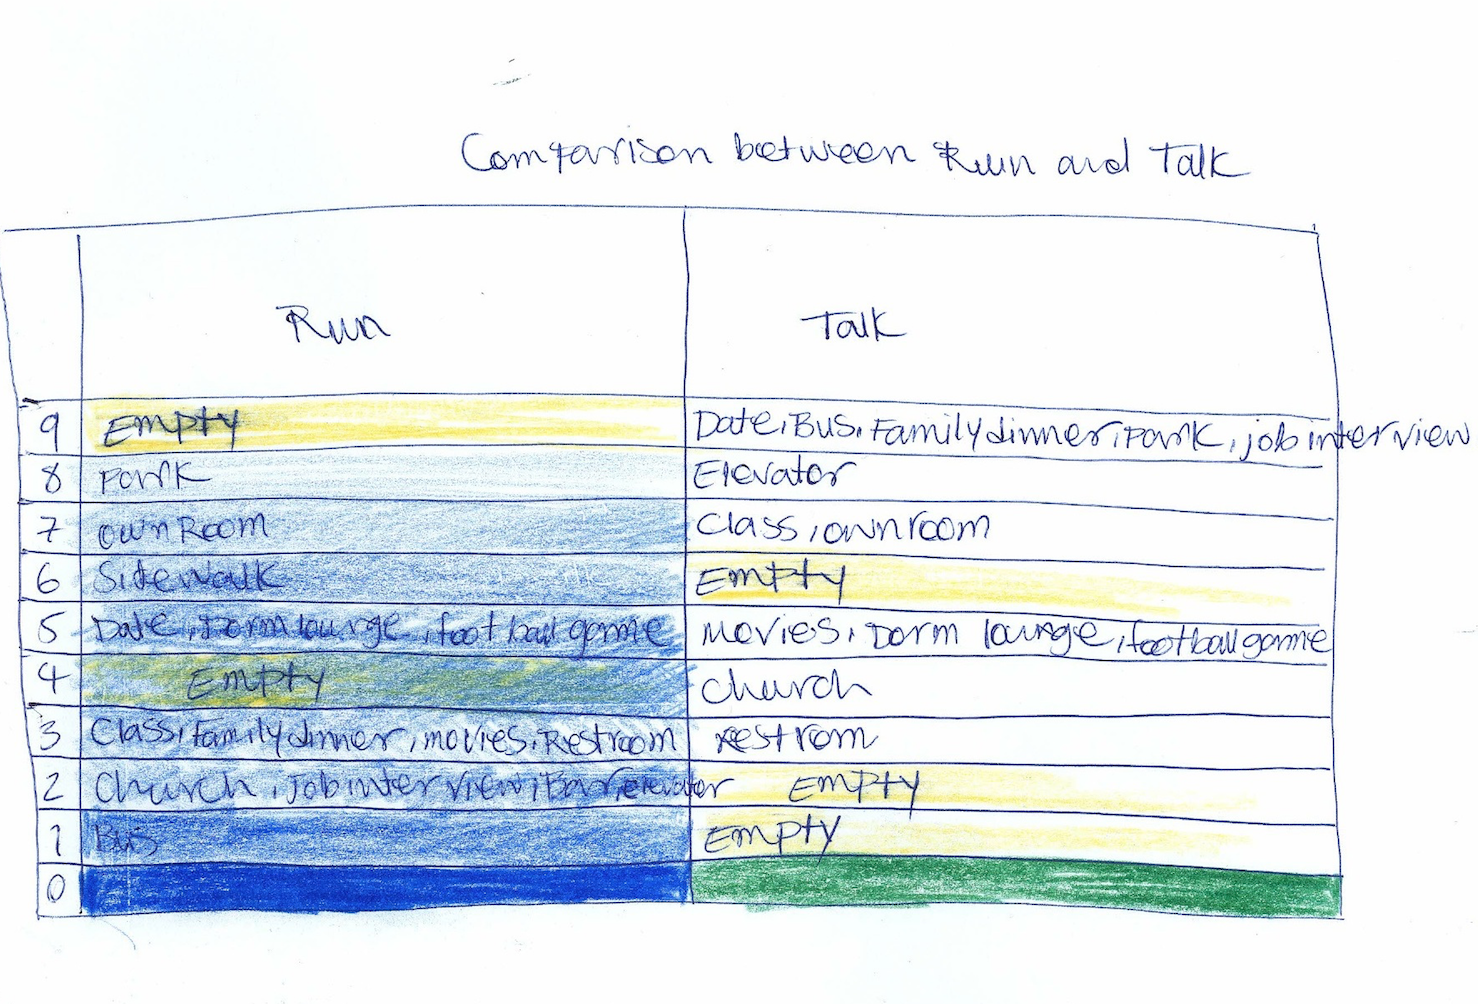 Comparison between Run and Talk
Run Talk
9 Empty Date, Bus, Family dinner, Park, job interview
8 Park Elevator
7 OwnRoom Class, ownroom
6 Sidewalk Empty
5 Date, Dorm lounge, football game Movies, Dorm lounge, football game
4 Empty Church
3 Class, Family dinner, movies, Restroom Restrom
2 Church, Job interview, Bar, elevator Empty
1 Bus Empty
0